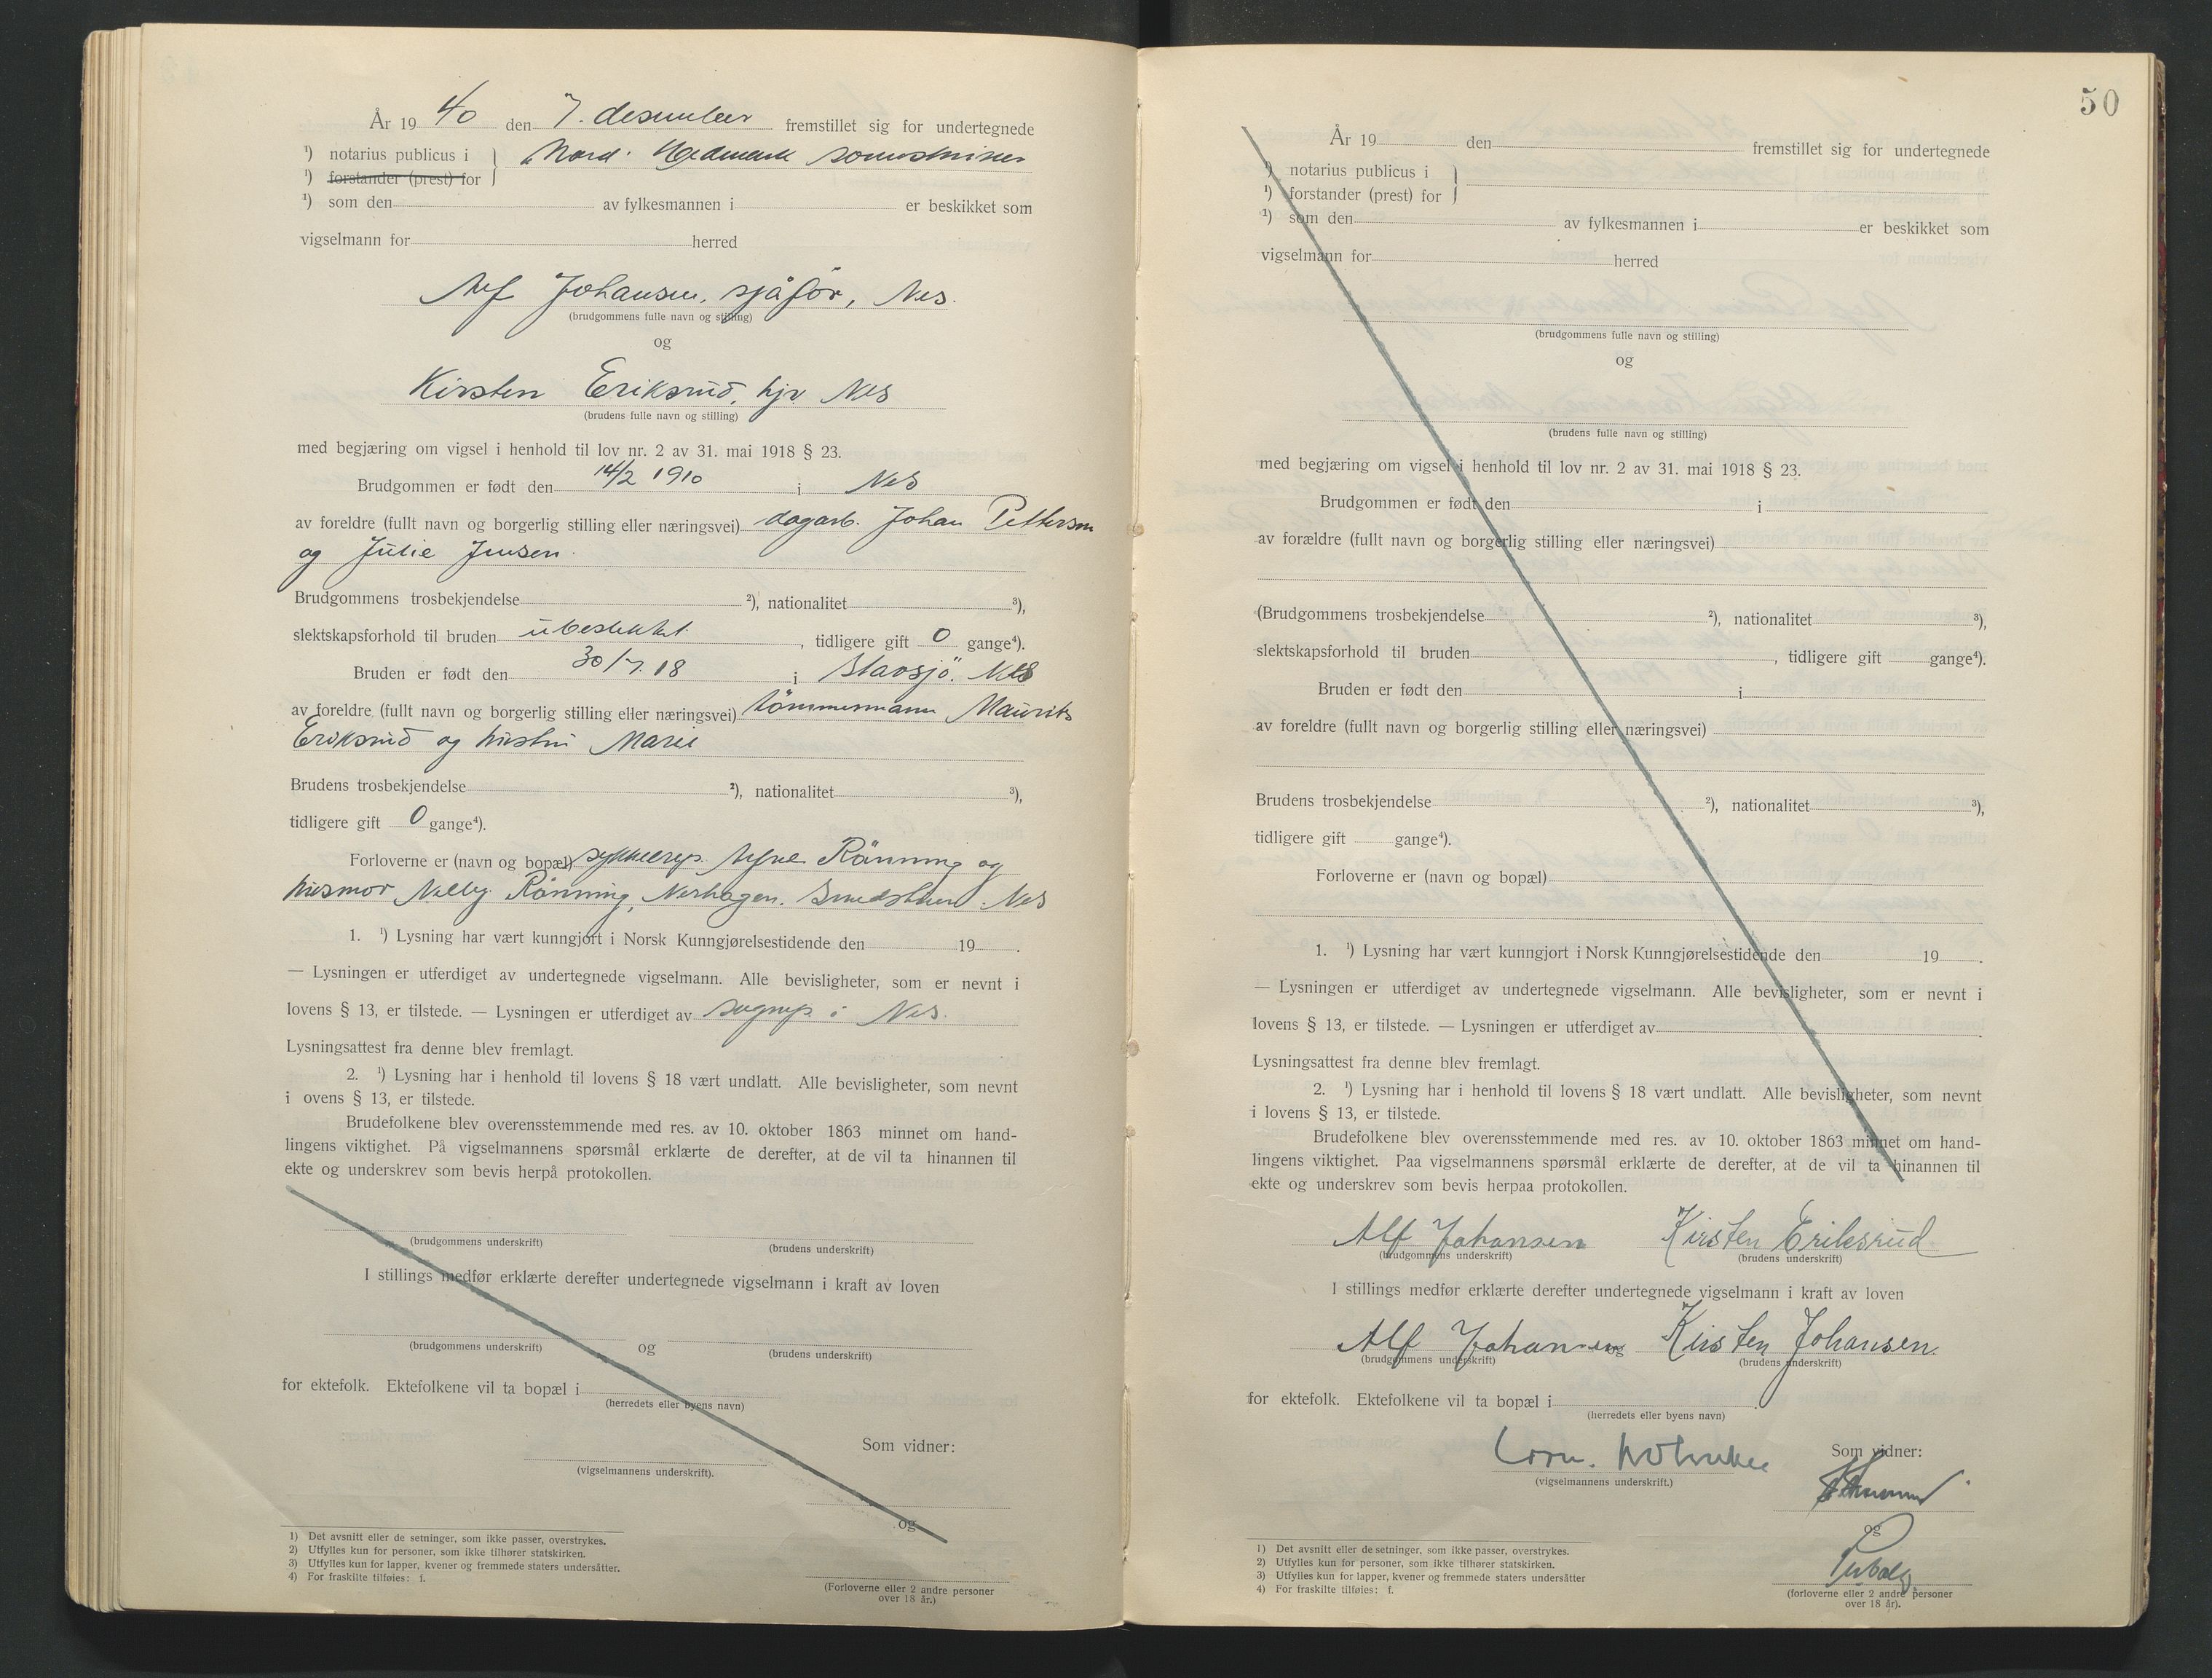 År 1940 den 7. desember fremstillet sig for undertegnede
¹) notarius publicus i } Nord-Hedmark sorenskriveri
¹) forstander (prest) for
¹) som den av fylkesmannen i er beskikket som
vigselmann for herred
Alf Johansen, sjåfør, Nes.
(brudgommens fulle navn og stilling)
og
Kirsten Eriksrud, hjv. Nes
(brudens fulle navn og stilling)
med begjæring om vigsel i henhold til lov nr. 2 av 31. mai 1918 § 23.
Brudgommen er født den 14/2 1910 i Nes
av foreldre (fullt navn og borgerlig stilling eller næringsvei) dagarb. Johan Pettersen
og Julie Jensen.
Brudgommens trosbekjendelse ²), nationalitet ³),
slektskapsforhold til bruden ubeslektet, tidligere gift 0 gange⁴).
Bruden er født den 30/7. 18 i Stavsjö. Nes
av foreldre (fullt navn og borgerlig stilling eller næringsvei) tömmermann Maurits
Eriksrud og hustru Marie
Brudens trosbekjendelse ²), nationalitet ³),
tidligere gift 0 gange⁴).
Forloverne er (navn og bopæl) Rönning og
husmor Nelly Rönning, Nerhagen. Nes
1. ¹) Lysning har vært kunngjort i Norsk Kunngjørelsestidende den 19 .
— Lysningen er utferdiget av undertegnede vigselmann. Alle bevisligheter, som er nevnt i
lovens § 13, er tilstede. — Lysningen er utferdiget av sognepr. i Nes.
Lysningsattest fra denne blev fremlagt.
2. ¹) Lysning har i henhold til lovens § 18 vært undlatt. Alle bevisligheter, som nevnt
i ovens § 13, er tilstede.
Brudefolkene blev overensstemmende med res. av 10. oktober 1863 minnet om hand-
lingens viktighet. På vigselmannens spørsmål erklærte de derefter, at de vil ta hinannen til
ekte og underskrev som bevis herpå protokollen.
(brudgommens underskrift) (brudens underskrift)
I stillings medfør erklærte derefter undertegnede vigselmann i kraft av loven
og
(brudgommens underskrift) (brudens underskrift)
for ektefolk. Ektefolkene vil ta bopæl i
(herredets eller byens navn)
Som vidner:
(vigselmannens underskrift).
og
1) Det avsnitt eller de setninger, som ikke passer, overstrykes.
2) Utfylles kun for personer, som ikke tilhører statskirken.
3) Utfylles kun for lapper, kvener og fremmede staters undersåtter.
4) For fraskilte tilføies: f.
(Forloverne eller 2 andre personer
over 18 år.)
50
År 19 den fremstillet sig for undertegnede
¹) notarius publicus i }
¹) forstander (prest) for
¹) som den av fylkesmannen i er beskikket som
vigselmann for herred
(brudgommens fulle navn og stilling)
og
(brudens fulle navn og stilling)
med begjæring om vigsel i henhold til lov nr. 2 av 31. mai 1918 § 23.
Brudgommen er født den i
av forældre (fullt navn og borgerlig stilling eller næringsvei)
(Brudgommens trosbekjendelse ²), nationalitet ³),
slektskapsforhold til bruden , tidligere gift gange⁴).
Bruden er født den i
av foreldre (fullt navn og borgerlig stilling eller næringsvei)
Brudens trosbekjendelse ²), nationalitet ³),
tidligere gift gange⁴).
Forloverne er (navn og bopæl)
1. ¹) Lysning har vært kunngjort i Norsk Kunngjørelsestidende den 19 .
— Lysningen er utferdiget av undertegnede vigselmann. Alle bevisligheter, som er nevnt i
lovens § 13, er tilstede. — Lysningen er utferdiget av .
Lysningsattest fra denne blev fremlagt.
2. ¹) Lysning har i henhold til lovens § 18 vært undlatt. Alle bevisligheter, som nevnt
i lovens § 13, er tilstede.
Brudefolkene blev overensstemmende med res. av 10. oktober 1863 minnet om hand-
lingens viktighet. Paa vigselmannens spørsmål erklærte de derefter, at de vil ta hinannen til
ekte og underskrev som bevis herpaa protokollen.
Alf Johansen Kirsten Eriksrud
(brudgommens underskrift) (brudens underskrift)
I stillings medfør erklærte derefter undertegnede vigselmann i kraft av loven
Alf Johansen og Kirsten Johansen.
(brudgommens underskrift) (brudens underskrift)
for ektefolk. Ektefolkene vil ta bopæl i .
(herredets eller byens navn)
Som vidner:
(vigselmannens underskrift.)
og
1) Det avsnitt eller de setninger, som ikke passer, overstrykes.
2) Utfylles kun for personer, som ikke tilhører statskirken.
3) Utfylles kun for lapper, kvener og fremmede staters undersåtter
4) For fraskilte tilføies: f.
(forloverne eller 2 andre personer
over 18 år).